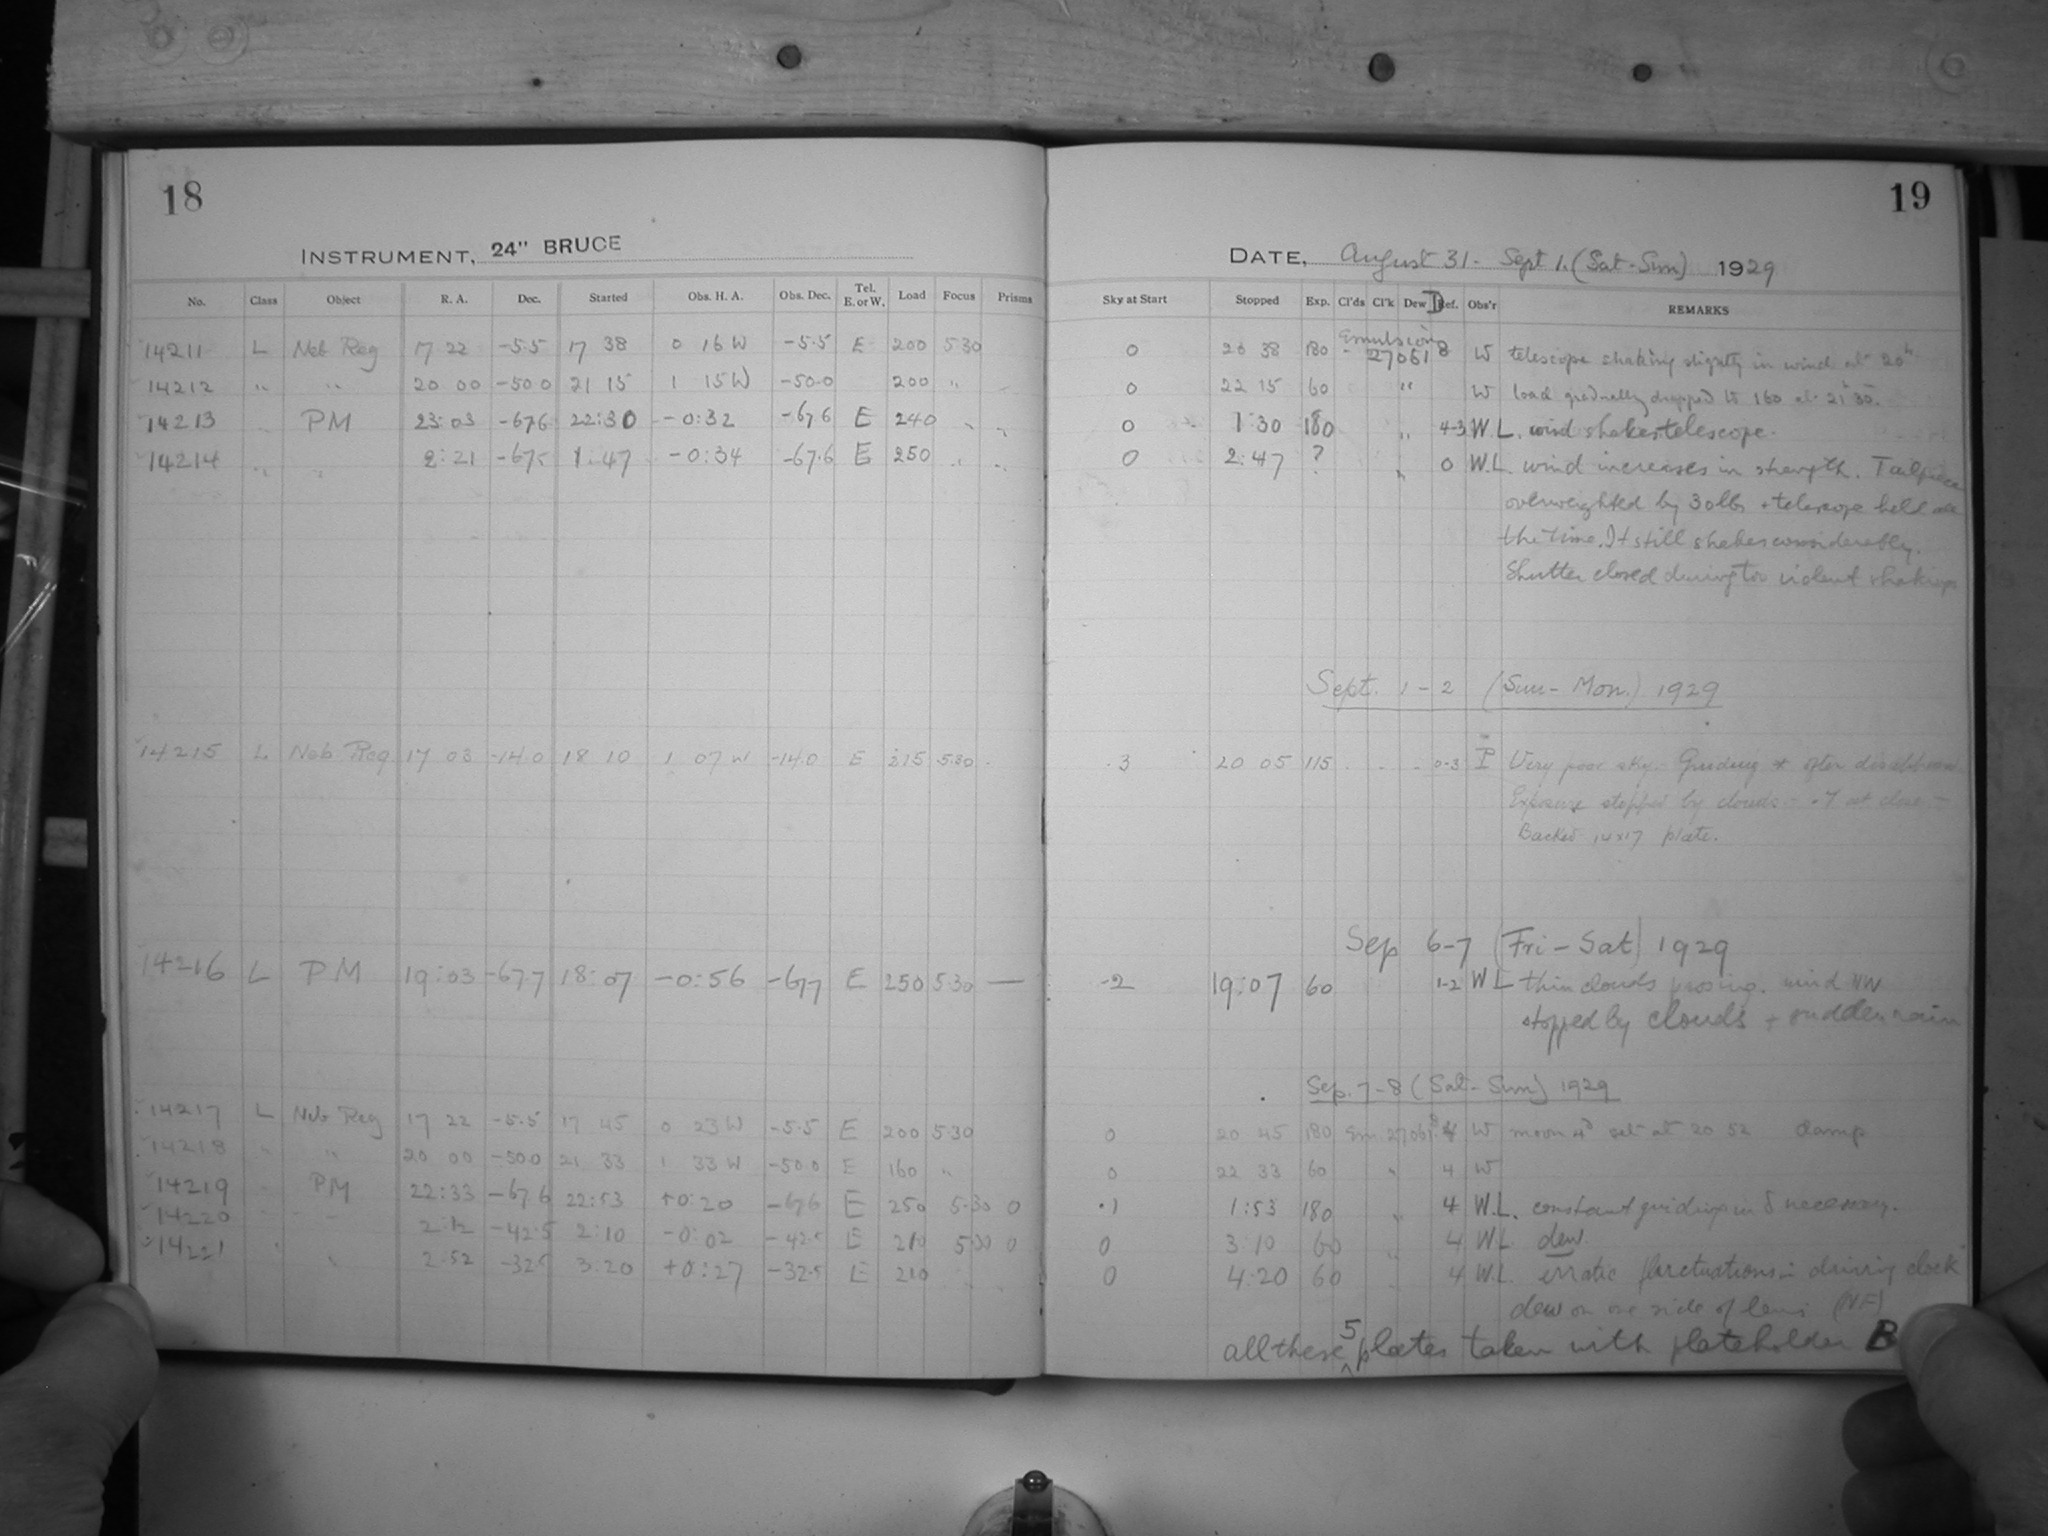 18
INSTRUMENT, 24" BRUCE
No. Class Object R. A. Dec. Started Obs. H. A. Obs. Dec. Tel. E. or W. Load Focus Prisms
14211 L Neb Reg 17 22 -5.5 17 38 0 16 W -5.5 E 200 5.30
14212 " " 20 00 -50.0 21 15 1 15 W -50.0 200 "
14213 " PM 23:03 -67.6 22:30 -0:32 -67.6 E 240 " "
14214 " " 2:21 -67. 1:47 -0:34 -67.6 E 250 " "
14215 L Neb Reg 17 03 -14.0 18 10 1 07 W -14.0 E 215 5.30
14216 L PM 19:03 -67.7 18:07 -0:56 -67.7 E 250 5.30 —
14217 L Neb Reg 17 22 -5.5 17 45 0 23 W -5.5 E 200 5.30
14218 " " 20 00 -50.0 21 33 1 33 W -50.0 E 160 "
14219 PM 22:33 -67.6 22:53 +0:20 -67.6 E 250 5.30 0
14220 2:12 -42.5 2:10 -0:02 -42.5 E 210 5.30 0
14221 " " 2:52 -32.5 3:20 +0:27 -32.5 E 210
19
DATE, August 31 - Sept 1. (Sat - Sun) 1929
Sky at Start Stopped Exp. Cl'ds Cl'k Dew Ref. Obs'r REMARKS
Emulsion
0 20 38 180 27061 8 W telescope shaking slightly in wind at 20h
0 22 15 60 " W load gradually dropped to 160 at 21 30.
0 1:30 180 " 4-3 W.L. wind shakes telescope.
0 2:47 ? " 0 W.L. wind increases in strength. Tailpiece
overweighted by 30 lbs + telescope held all
the time. It still shakes considerably.
Shutter closed during too violent shakings
Sept. 1 - 2 (Sun - Mon.) 1929
.3 20 05 115 0-3 Very poor sky. Guiding
Exposure stopped by clouds - .7 at close -
Backed 14x17 plate.
Sep 6-7 (Fri - Sat) 1929
-2 19:07 60 1-2 W L thin clouds passing. wind NW
stopped by clouds + sudden rain
Sep. 7-8 (Sat - Sun) 1929
0 20 45 180 Em 27061 8 4 W moon 4d set at 20 52 damp
0 22 33 60 " 4 W
.1 1:53 180 " 4 W.L. constant guiding in δ necessary.
0 3 10 60 " 4 W L dew
0 4:20 60 4 W.L. erratic fluctuations in driving clock
dew on one side of lens (NF)
all these 5 plates taken with plateholder B